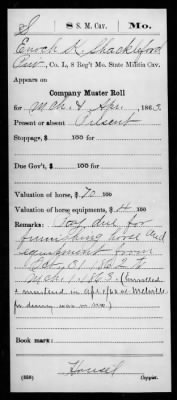 S | 8 S. M. Cav. | Mo.
Enoch K. Shackleford
Pvt, Co. L, 8 Reg't Mo. State Militia Cav.
Appears on
Company Muster Roll
for Mch. & Apr., 1863.
Present or absent Present
Stoppage, $ 100 for
Due Gov't, $ 100 for
Valuation of horse, $ 70 100
Valuation of horse equipments, $ 14 100
Remarks: Pay due for
furnishing horse and
equipment from
Oct. 31 1862 to
Mch. 1 1863 (Enrolled
& mustered in Apl 1/62 at Melville
for during war in MO)
Book mark:
(358)
Copyist.